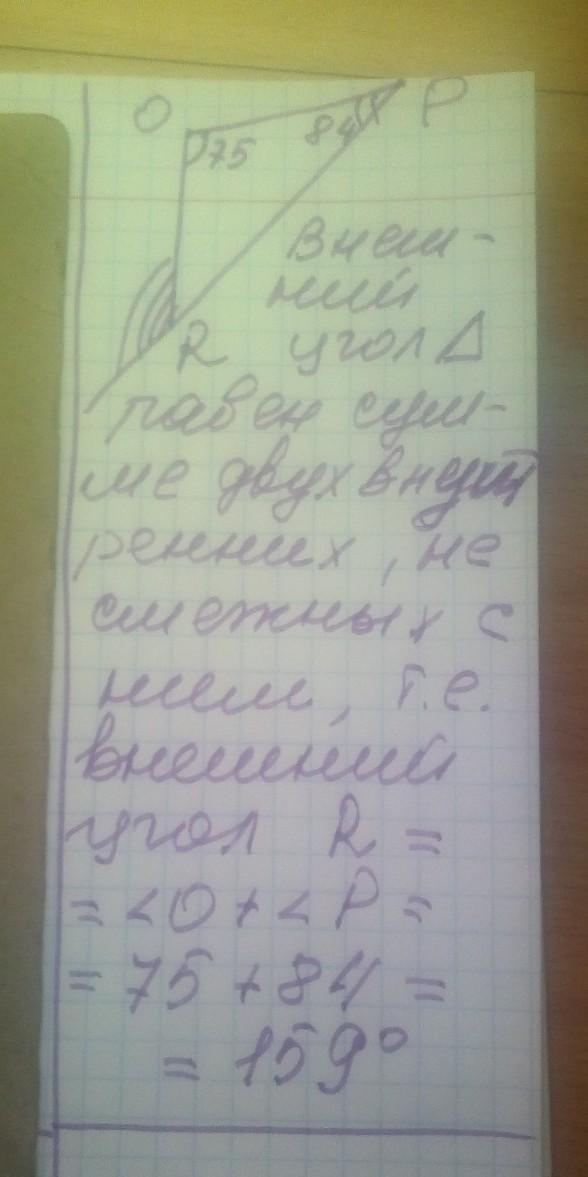 O P
75 84
Внеш-
ний
R угол Δ
равен сум-
ме двух внут
ренних, не
смежных с
ним, т.е.
внешний
угол R =
= <O + <P =
= 75 + 84 =
= 159°